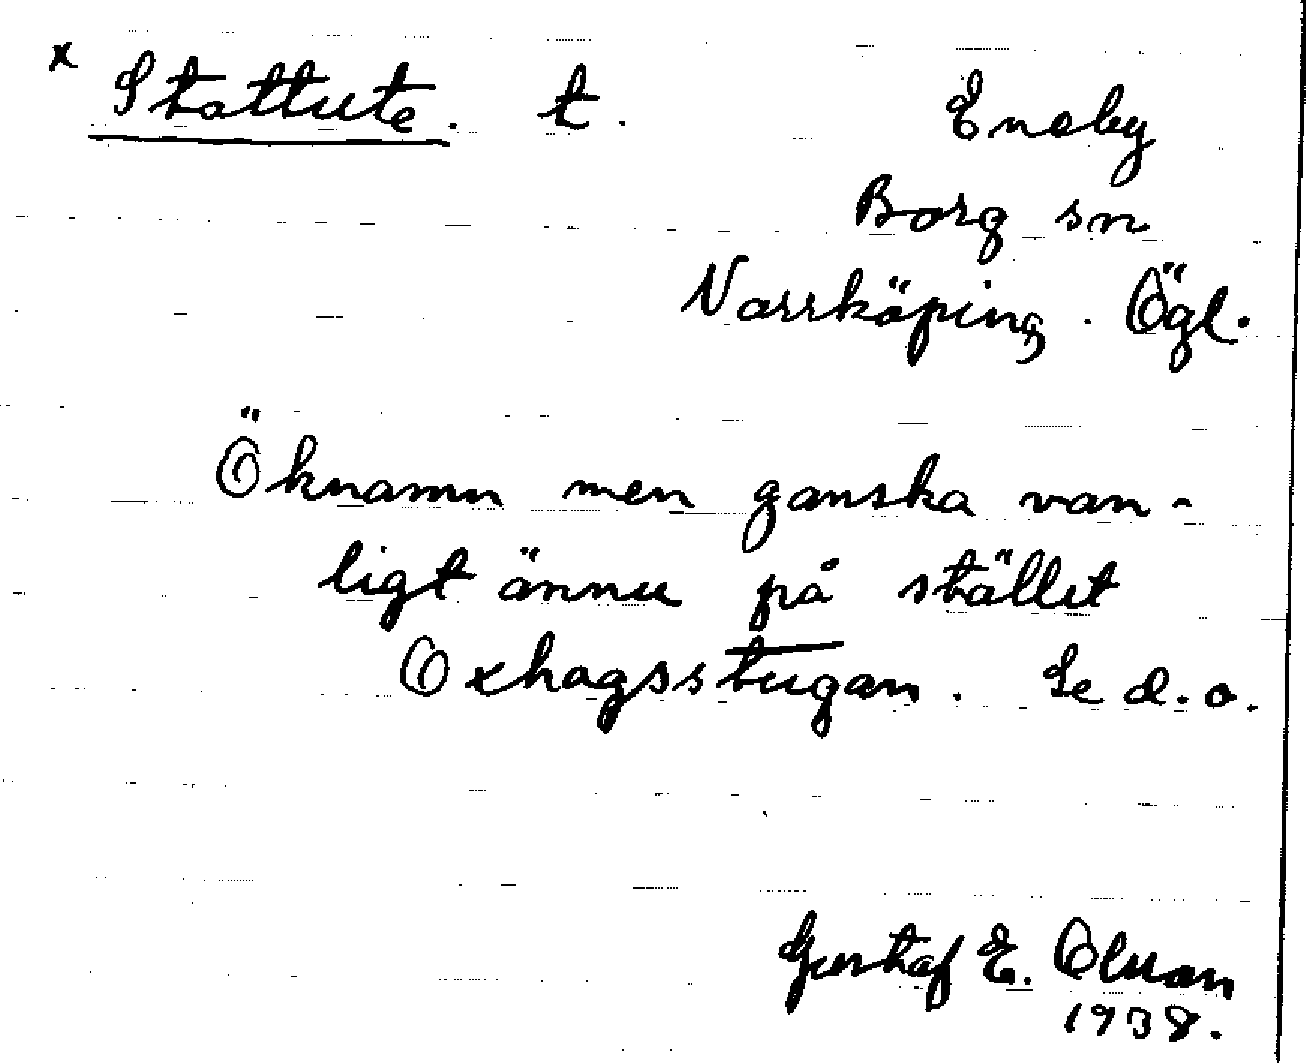 x Stattute. t. Eneby
Borg sn
Norrköping. Ögl.
Öknamn men ganska van-
ligt ännu på stället
Oxhagsstugan. Se d.o.
Gustaf E. Olson
1938.